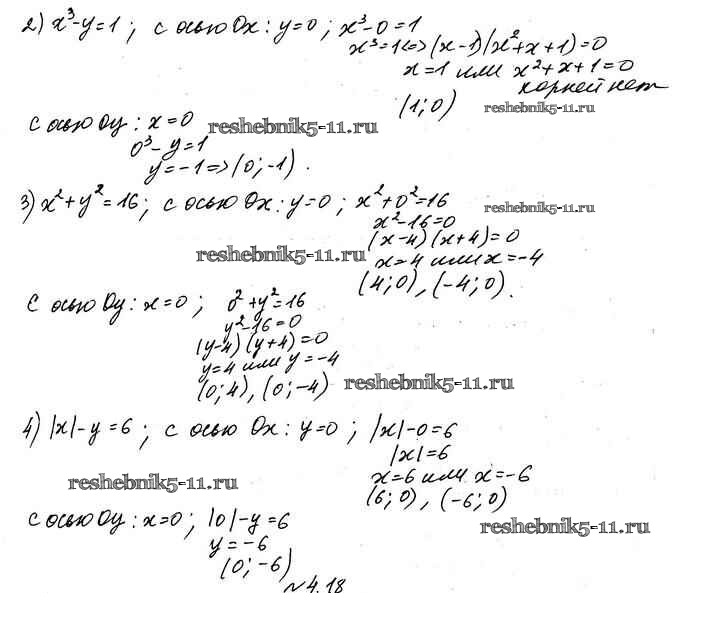 2) x³-y=1; с осью Ox: y=0; x³-0=1
x³=1<=>(x-1)(x²+x+1)=0
x=1 или x²+x+1=0
корней нет
(1;0) reshebnik5-11.ru
с осью Oy: x=0 reshebnik5-11.ru
0³-y=1
y=-1=>(0;-1).
3) x²+y²=16; с осью Ox: y=0; x²+0²=16 reshebnik5-11.ru
x²-16=0
(x-4)(x+4)=0
reshebnik5-11.ru x=4 или x=-4
(4;0), (-4;0).
С осью Oy: x=0; 0²+y²=16
y²-16=0
(y-4)(y+4)=0
y=4 или y=-4
(0;4), (0;-4) reshebnik5-11.ru
4) |x|-y=6; с осью Ox: y=0; |x|-0=6
|x|=6
reshebnik5-11.ru x=6 или x=-6
(6;0), (-6;0)
с осью Oy: x=0; |0|-y=6 reshebnik5-11.ru
y=-6
(0;-6)
№4.18